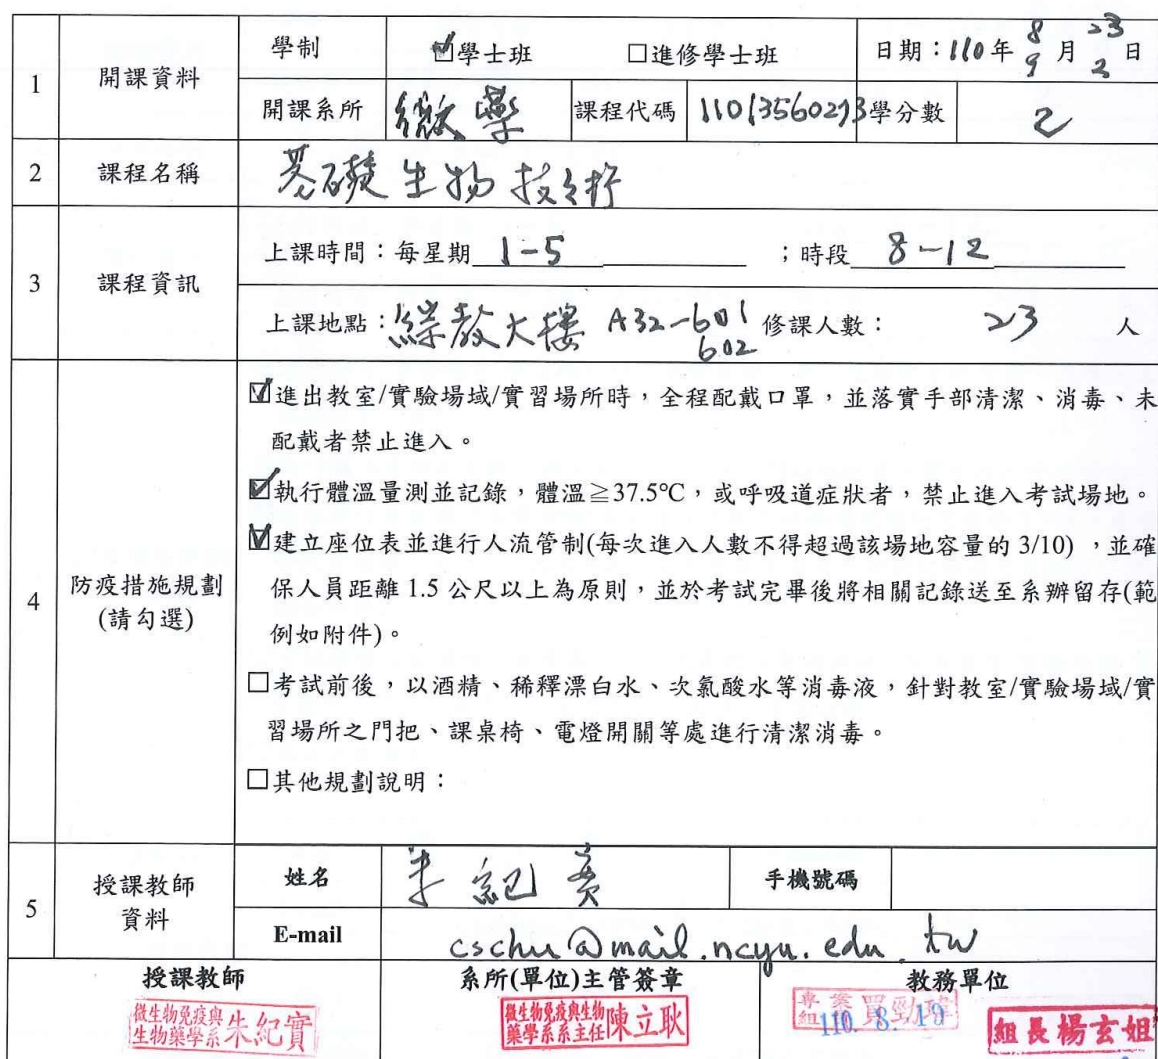 1 開課資料 學制 ☑學士班 □進修學士班 日期：110年 8 9 月 23 2 日
開課系所 微藥 課程代碼 110135602713 學分數 2
2 課程名稱 基礎生物技術
3 課程資訊 上課時間：每星期 1-5 ；時段 8-12
上課地點：綜教大樓 A32-601 602 修課人數： 23 人
4 防疫措施規劃 (請勾選)
☑進出教室/實驗場域/實習場所時，全程配戴口罩，並落實手部清潔、消毒、未
配戴者禁止進入。
☑執行體溫量測並記錄，體溫≧37.5°C，或呼吸道症狀者，禁止進入考試場地。
☑建立座位表並進行人流管制(每次進入人數不得超過該場地容量的 3/10) ，並確
保人員距離 1.5 公尺以上為原則，並於考試完畢後將相關記錄送至系辦留存(範
例如附件)。
□考試前後，以酒精、稀釋漂白水、次氯酸水等消毒液，針對教室/實驗場域/實
習場所之門把、課桌椅、電燈開關等處進行清潔消毒。
□其他規劃說明：
5 授課教師 資料 姓名 朱紀實 手機號碼
E-mail cschu@mail.ncyu.edu.tw
授課教師 系所(單位)主管簽章 教務單位
微生物免疫與 生物藥學系 朱紀實 微生物免疫與生物 藥學系系主任 陳立耿 專案 組 110. 8. 19 組長楊玄姐